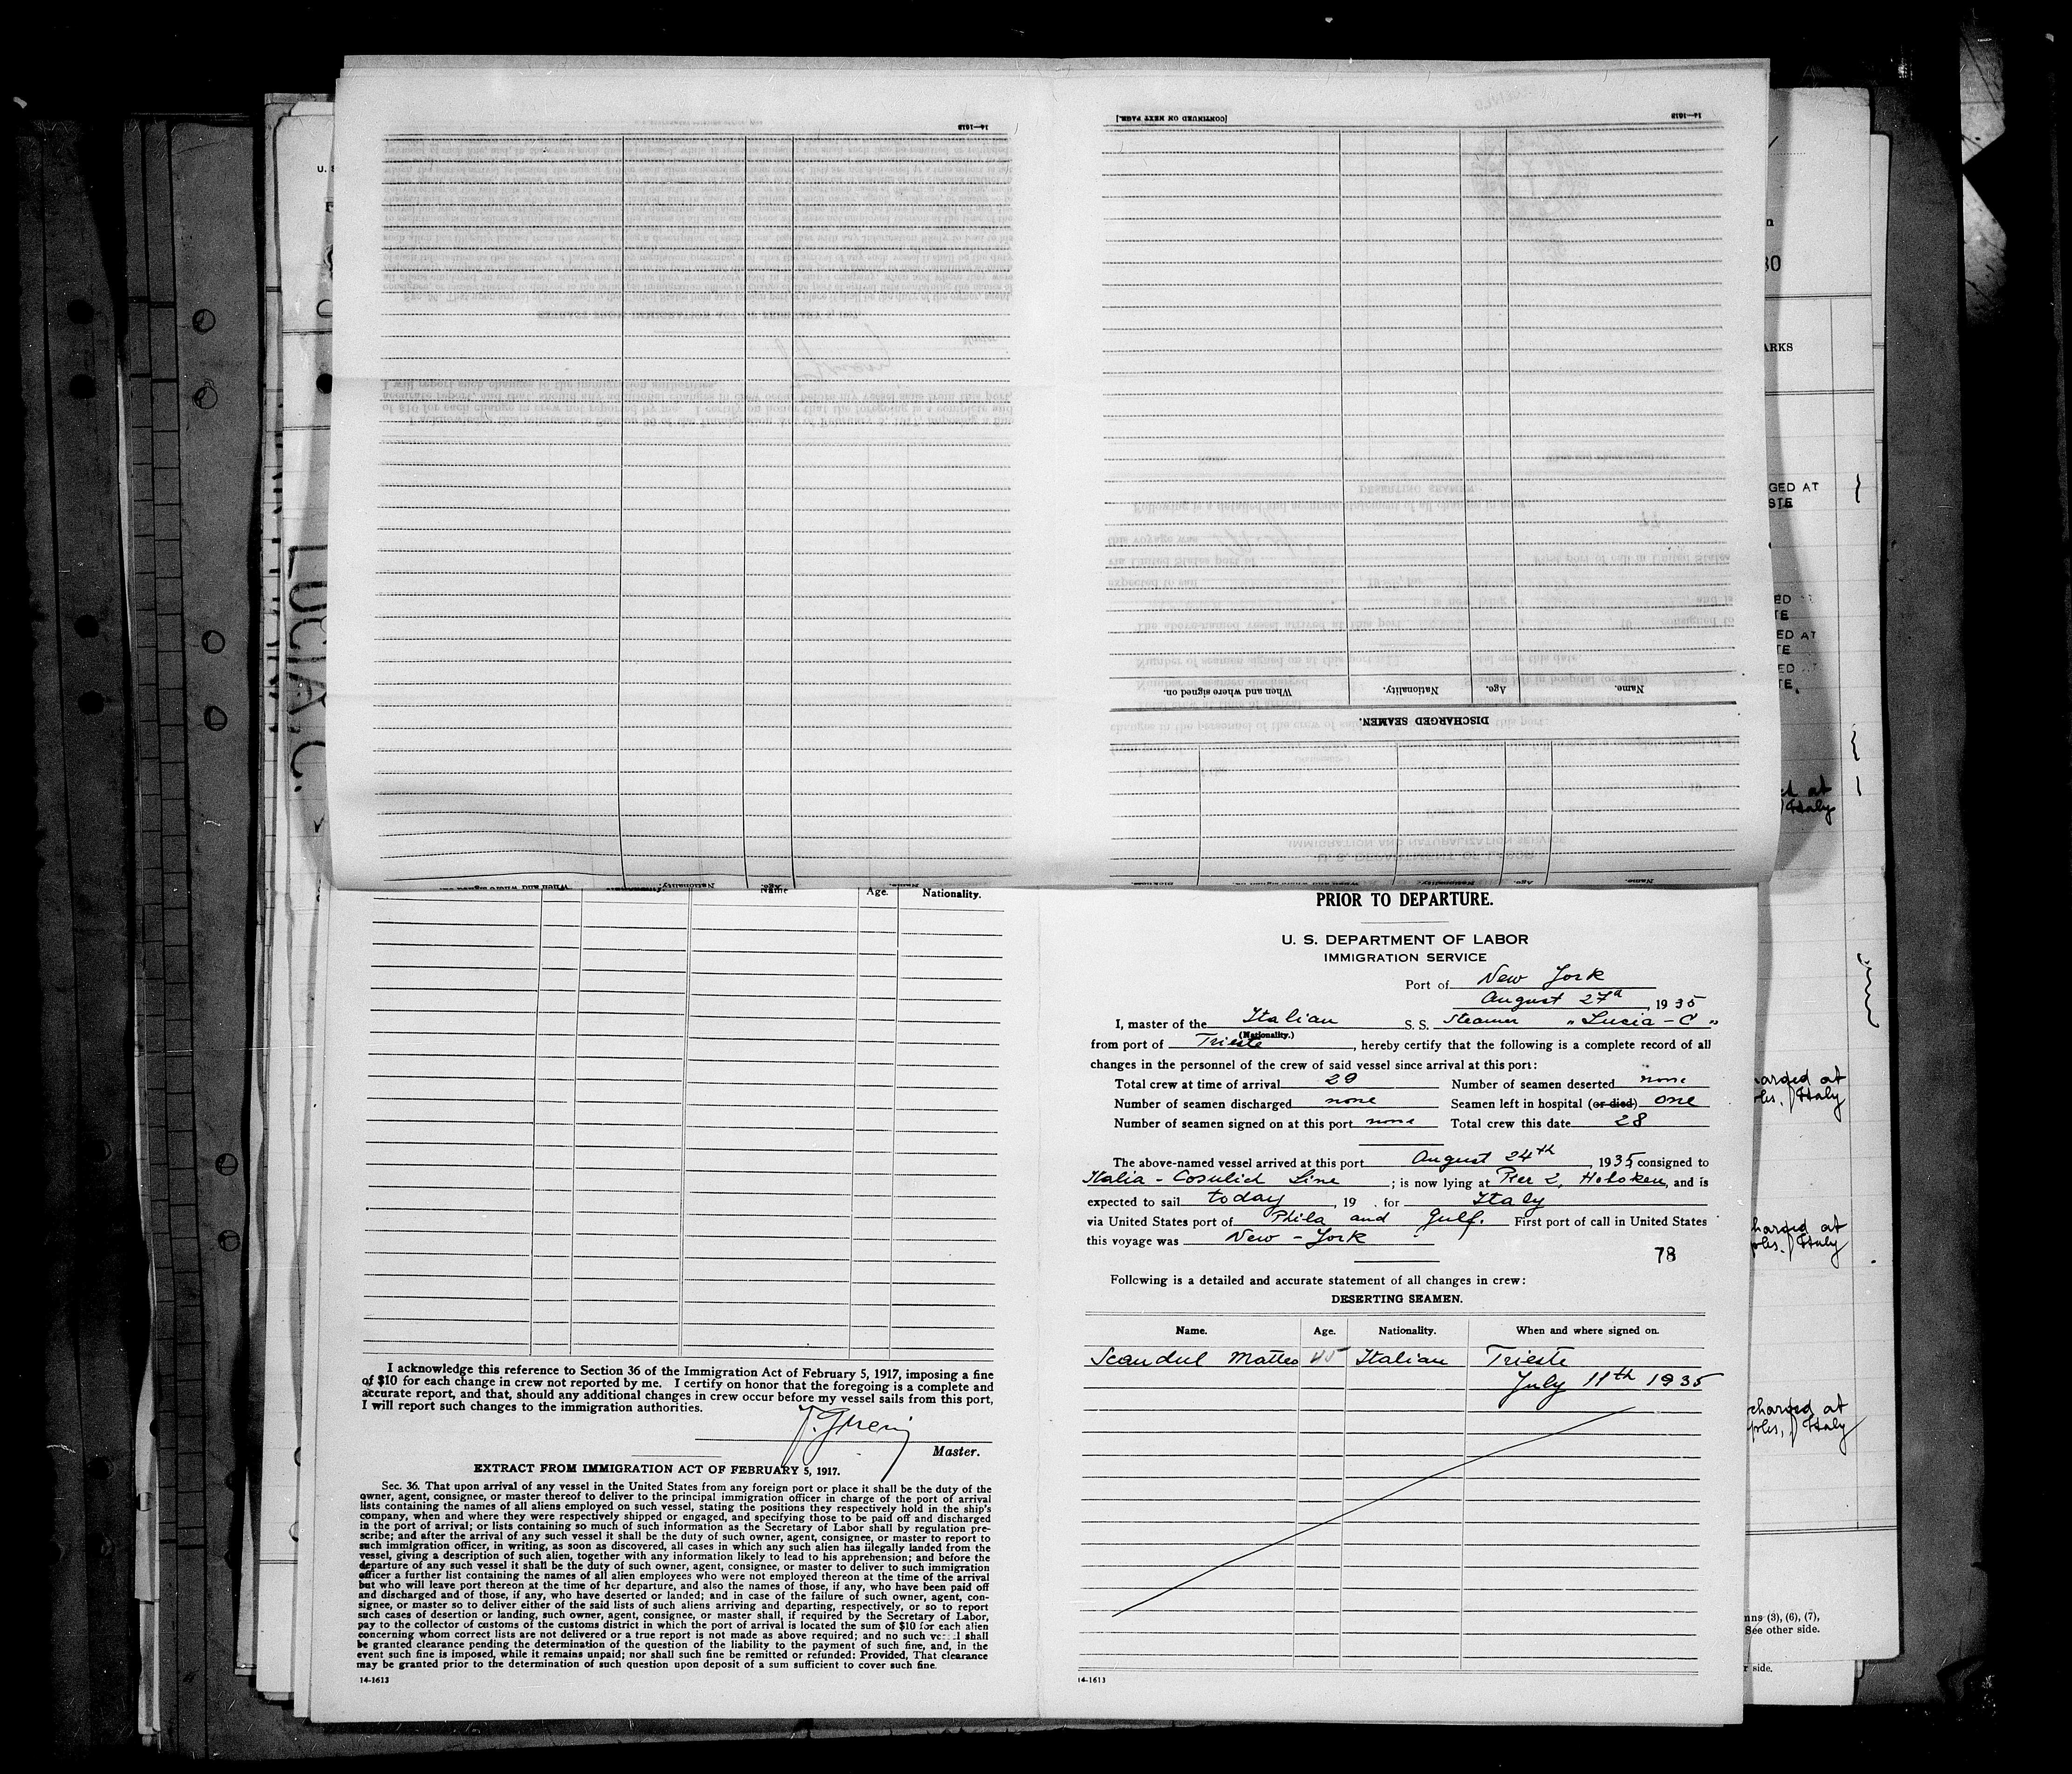 PRIOR TO DEPARTURE.
U. S. DEPARTMENT OF LABOR
IMMIGRATION SERVICE
Port of New York
August 27th, 1935
I, master of the Italian S. S. Steamer "Lucia-C"
(Nationality.)
from port of Trieste, hereby certify that the following is a complete record of all
changes in the personnel of the crew of said vessel since arrival at this port:
Total crew at time of arrival 29 Number of seamen deserted none
Number of seamen discharged none Seamen left in hospital (or died) one
Number of seamen signed on at this port none Total crew this date 28
The above-named vessel arrived at this port August 24th, 1935 consigned to
Italia - Cosulich Line; is now lying at Pier 2, Hoboken, and is
expected to sail today, 19 , for Italy
via United States port of Phila and Gulf. First port of call in United States
this voyage was New-York
78
Following is a detailed and accurate statement of all changes in crew:
DESERTING SEAMEN.
Name. Age. Nationality. When and where signed on.
Scandul Matteo 45 Italian Trieste
July 11th 1935
14-1613
Name Age. Nationality.
I acknowledge this reference to Section 36 of the Immigration Act of February 5, 1917, imposing a fine
of $10 for each change in crew not reported by me. I certify on honor that the foregoing is a complete and
accurate report, and that, should any additional changes in crew occur before my vessel sails from this port,
I will report such changes to the immigration authorities.
Master.
EXTRACT FROM IMMIGRATION ACT OF FEBRUARY 5, 1917.
Sec. 36. That upon arrival of any vessel in the United States from any foreign port or place it shall be the duty of the
owner, agent, consignee, or master thereof to deliver to the principal immigration officer in charge of the port of arrival
lists containing the names of all aliens employed on such vessel, stating the positions they respectively hold in the ship's
company, when and where they were respectively shipped or engaged, and specifying those to be paid off and discharged
in the port of arrival; or lists containing so much of such information as the Secretary of Labor shall by regulation pre-
scribe; and after the arrival of any such vessel it shall be the duty of such owner, agent, consignee, or master to report to
such immigration officer, in writing, as soon as discovered, all cases in which any such alien has illegally landed from the
vessel, giving a description of such alien, together with any information likely to lead to his apprehension; and before the
departure of any such vessel it shall be the duty of such owner, agent, consignee, or master to deliver to such immigration
officer a further list containing the names of all alien employees who were not employed thereon at the time of the arrival
but who will leave port thereon at the time of her departure, and also the names of those, if any, who have been paid off
and discharged and of those, if any, who have deserted or landed; and in case of the failure of such owner, agent, con-
signee, or master so to deliver either of the said lists of such aliens arriving and departing, respectively, or so to report
such cases of desertion or landing, such owner, agent, consignee, or master shall, if required by the Secretary of Labor,
pay to the collector of customs of the customs district in which the port of arrival is located the sum of $10 for each alien
concerning whom correct lists are not delivered or a true report is not made as above required; and no such vessel shall
be granted clearance pending the determination of the question of the liability to the payment of such fine, and, in the
event such fine is imposed, while it remains unpaid; nor shall such fine be remitted or refunded: Provided, That clearance
may be granted prior to the determination of such question upon deposit of a sum sufficient to cover such fine.
14-1613
[CONTINUED ON NEXT PAGE.]
14-1613
DISCHARGED SEAMEN.
Name. Age. Nationality. When and where signed on.
14-1613
LUCIA C.
See other side.